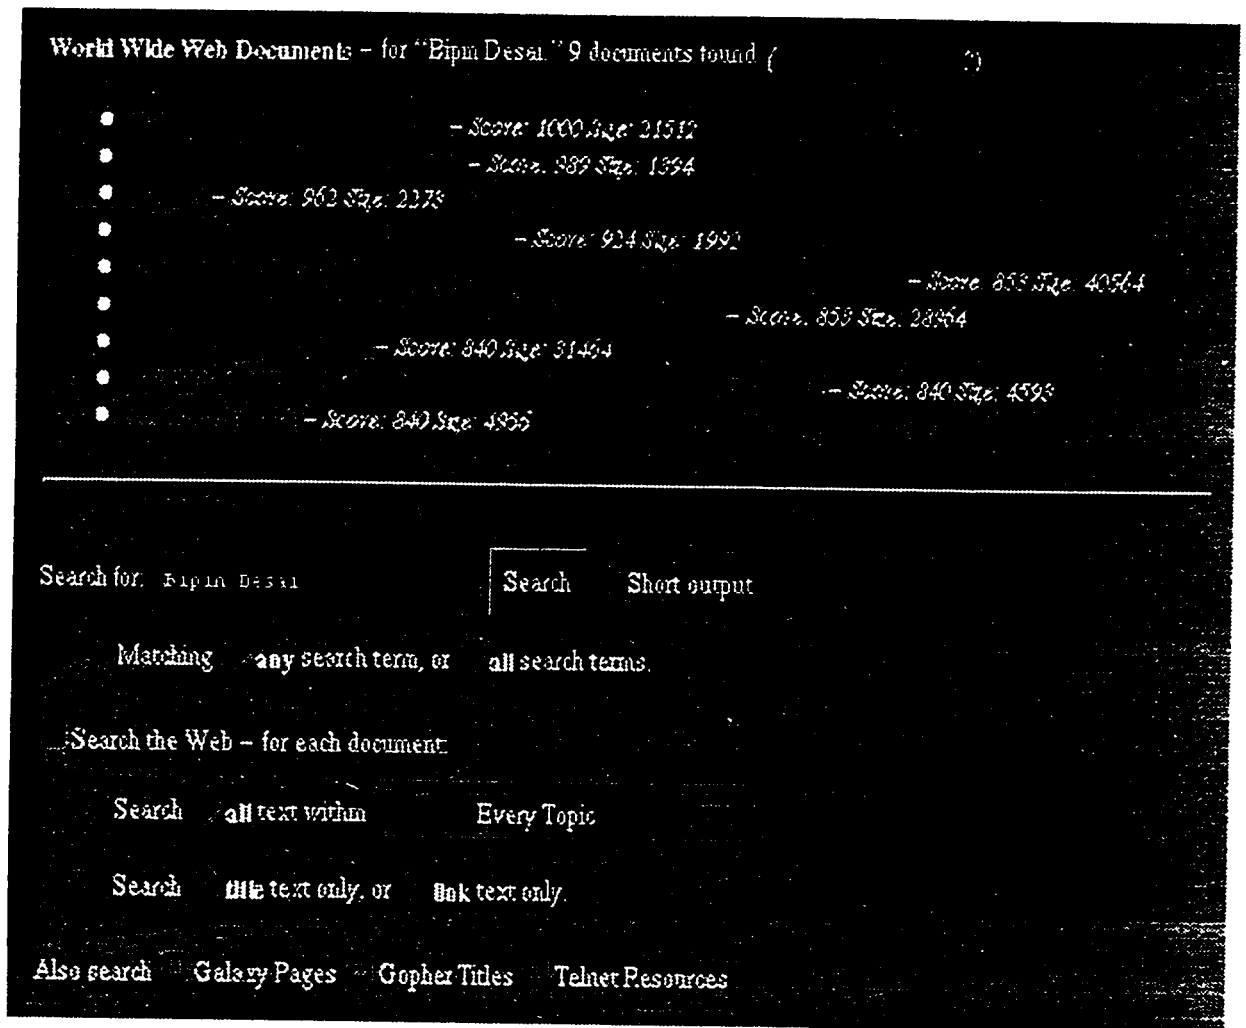 World Wide Web Documents – for "Bipin Desai." 9 documents found (
– Score: 1000 Size: 21512
– Score: 989 Size: 1394
– Score: 962 Size: 2273
– Score: 924 Size: 1992
– Score: 853 Size: 40564
– Score: 853 Size: 28964
– Score: 840 Size: 31464
– Score: 840 Size: 4593
– Score: 840 Size:
Search for: Bipin Desai Search Short output
Matching any search term, or all search terms.
Search the Web – for each document:
Search all text within Every Topic
Search title text only, or link text only.
Also search Galaxy Pages Gopher Titles Telnet Resources